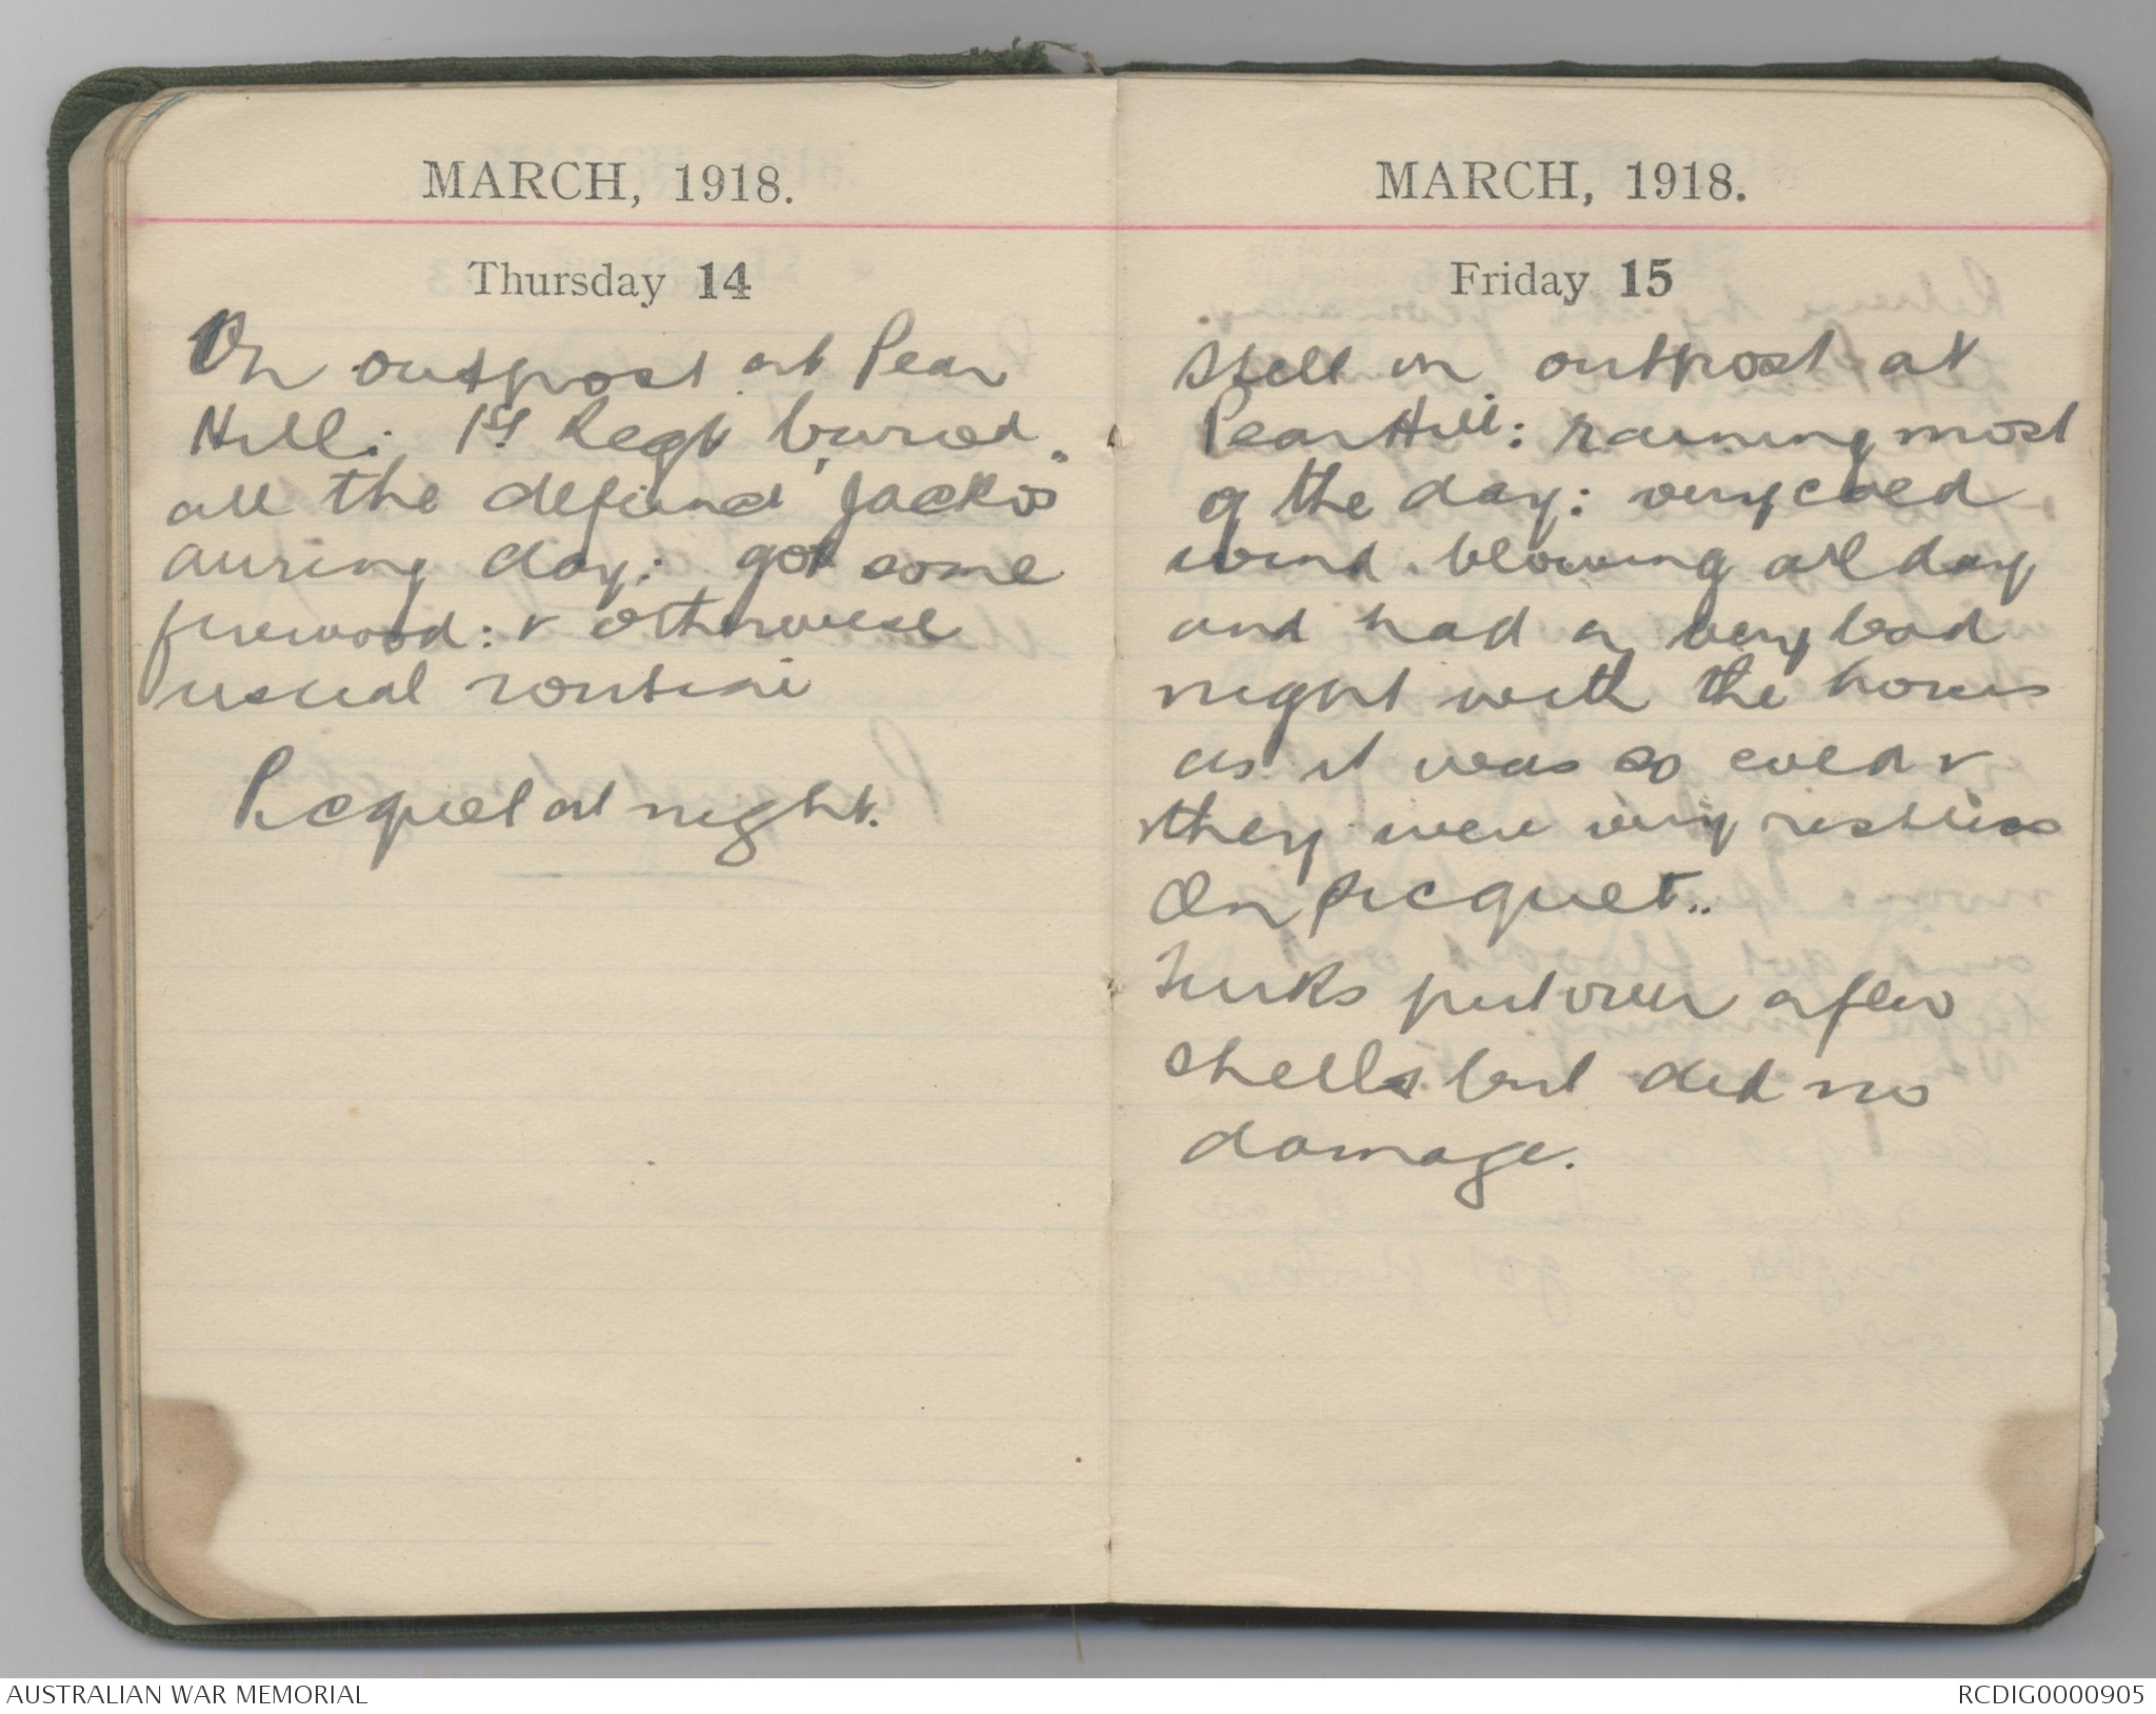 MARCH, 1918.
Thursday 14
On outpost at Pear
Hill: 1st Regt buried
all the defunct "Jackos"
during day: got some
firewood: & otherwise
usual routine
Picquet at night.
MARCH, 1918.
Friday 15
Still on outpost at
Pear Hill: raining most
of the day: very cold
wind blowing all day
and had a very bad
night with the horses
as it was so cold &
they were very restless
On picquet..
Turks put over a few
shells but did no
damage.
AUSTRALIAN WAR MEMORIAL
RCDIG0000905